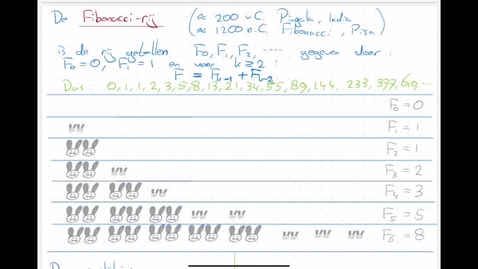 De Fibonacci-rij (≈ 200 v.C. Pingala, India
≈ 1200 n.C. Fibonacci, Pisa)
is de rij getallen F₀, F₁, F₂, .... gegeven door:
F₀ = 0, F₁ = 1 en voor k ≥ 2:
F = Fₖ₋₁ + Fₖ₋₂
Dus: 0, 1, 1, 2, 3, 5, 8, 13, 21, 34, 55, 89, 144, 233, 377, 610, ...
F₀ = 0
F₁ = 1
F₂ = 1
F₃ = 2
F₄ = 3
F₅ = 5
F₆ = 8